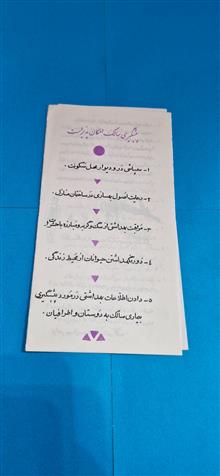 پیشگیری سالک امکان پذیر است
۱- سمپاشی در و دیوار محل سکونت .
۲- رعایت اصول بهسازی در ساختمان منازل .
۳- مراقبت بهداشتی از سگ و گربه و مبارزه با
۴- دور نگهداشتن حیوانات از محیط زندگی .
۵- دادن اطلاعات بهداشتی در مورد پیشگیری
بیماری سالک به دوستان و اطرافیان .